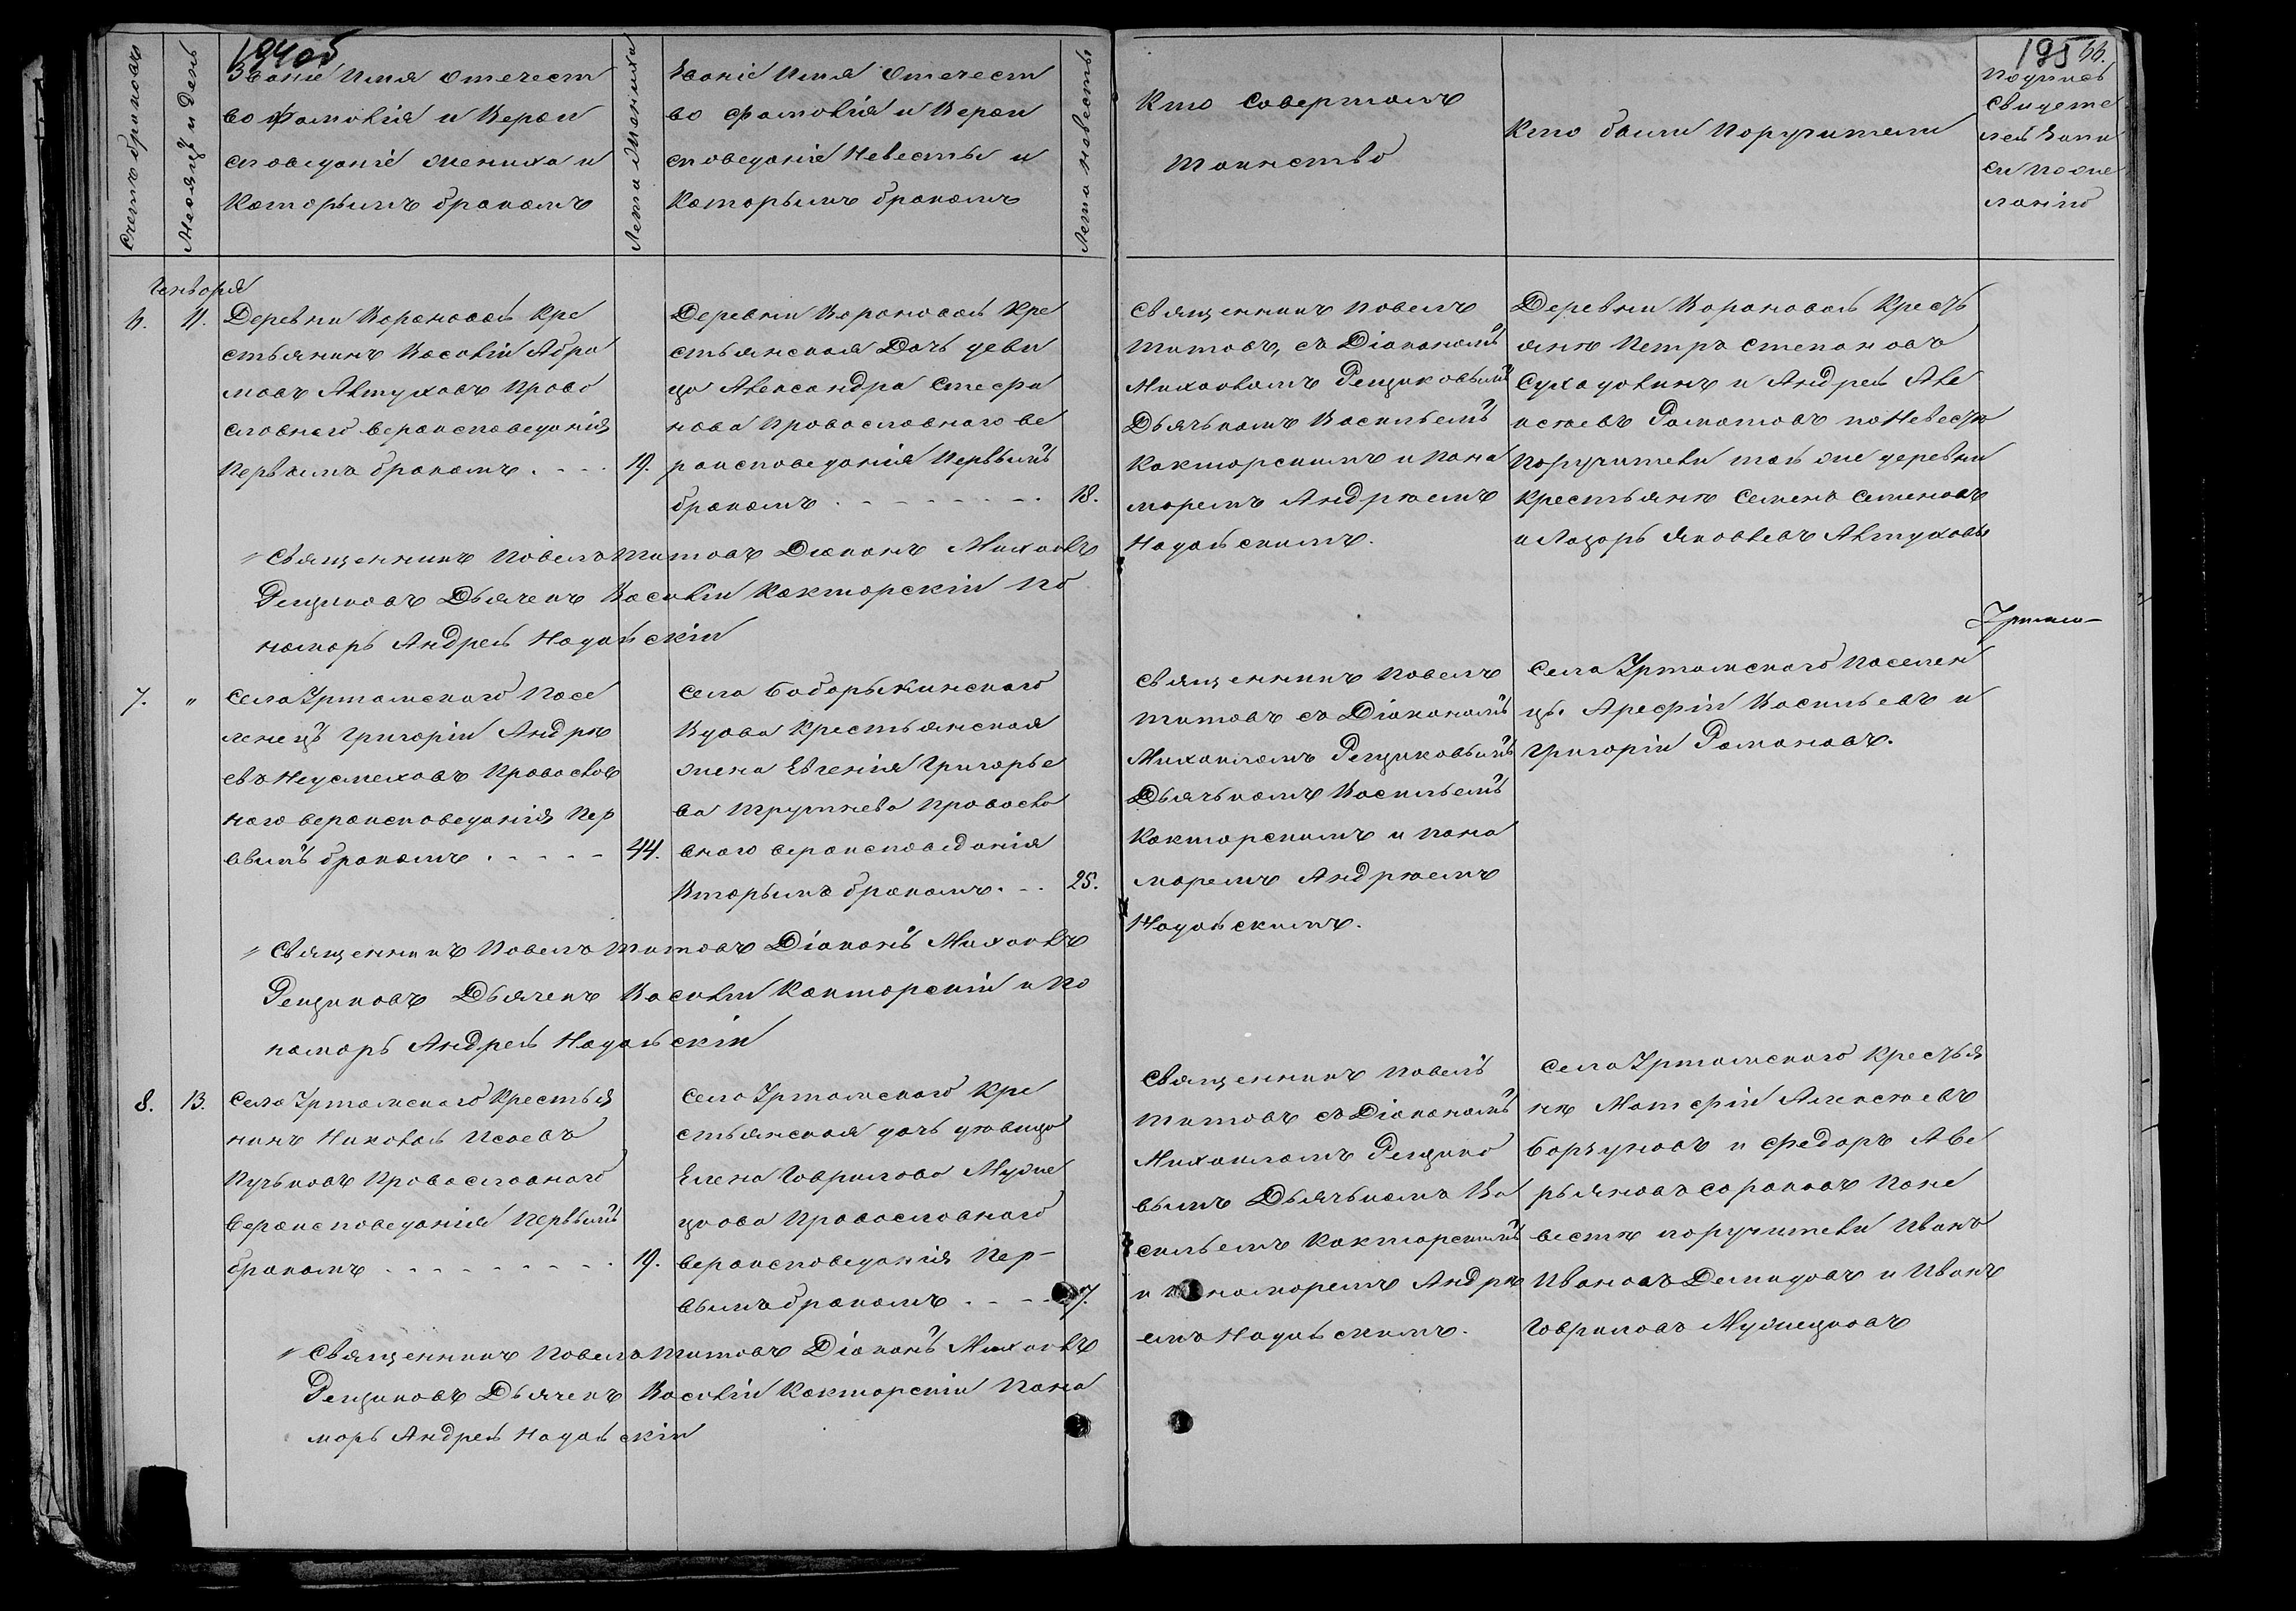 194об
195
66.
Счетъ браковъ
Месяцъ и День
Званіе Имя Отечест
во Фамилія и Верои
споведаніе Жениха и
Которымъ бракомъ
Лета Жениха
Званіе Имя Отечест
во Фамилія и Верои
споведаніе Невесты и
Которымъ бракомъ
Лета Невесты
Кто Совершалъ
Таинство
Кто были Поручители
Подпись
Свидете
лей Запи
си по же
ланію
Генваря
6.
11.
Деревни Вороновой Кре
стьянинъ Василій Абра
мовъ Автуховъ Право
славнаго вероисповеданія
Первымъ бракомъ
19.
Деревни Вороновой Кре
стьянская Дочь деви
ца Александра Стефа
нова Православнаго ве
роисповеданія Первымъ
бракомъ
18.
Священникъ Павелъ
Титовъ, съ Діакономъ
Михаиломъ Рещиковымъ
Дьячькомъ Васильемъ
Канторскимъ и Поно
моремъ Андрѣемъ
Надаискимъ.
Деревни Вороновой Кресть
янѣ Петръ Степановъ
Суходолинъ и Андрей Але
ксѣевъ по Невестѣ
Поручители той же деревни
Крестьянѣ Семенъ Семеновъ
и Лазарь Яковлевъ Автуховы
Священникъ Павелъ Титовъ Діаконъ Михаилъ
Рещиковъ Дьячекъ Василій Канторскій По
номорь Андрей Надаискій
7.
"
Села Уртамскаго Посе
ленецъ Григорій Андрѣ
евъ Неусмеховъ Православ
наго вероисповеданія Пер
вымъ бракомъ
44.
Села Баборыкинскаго
Вдова Крестьянская
жена Евгенія Григорье
ва Трутнева Правосла
внаго вероисповеданія
Вторымъ бракомъ
25.
Священникъ Павелъ
Титовъ съ Діакономъ
Михаиломъ Рещиковымъ
Дьячькомъ Васильемъ
Канторскимъ и Поно
моремъ Андрѣемъ
Надаискимъ.
Села Уртамскаго Поселен
цы Арефій Васильевъ и
Григорій Рамановъ.
Священникъ Павелъ Титовъ Діаконъ Михаилъ
Рещиковъ Дьячекъ Василій Канторскій и По
номорь Андрей Надаискій
8.
13.
Села Уртамскаго Крестья
нинъ Николай Исаевъ
Пучьковъ Православнаго
Вероисповеданія Первымъ
бракомъ
19.
Села Уртамскаго Кре
стьянская дочь дѣвица
Елена Гаврилова Мужие
цкова Православнаго
вероисповеданія Пер-
вымъ бракомъ
Священникъ Павелъ
Титовъ съ Діакономъ
Михаиломъ Рещико
вымъ Дьячькомъ Ва
сильемъ Канторскимъ
и Пономоремъ Андрѣ
емъ Надаискимъ.
Села Уртамскаго Крестья
нѣ Матфій Алексѣевъ
Барзуновъ и Федоръ Аве
рьяновъ Сороковъ По не
вестѣ поручители Иванъ
Ивановъ Демидовъ и Иванъ
Гавриловъ Мужиецковъ
Священникъ Павелъ Титовъ Діаконъ Михаилъ
Рещиковъ Дьячекъ Василій Канторскій Поно
морь Андрей Надаискій